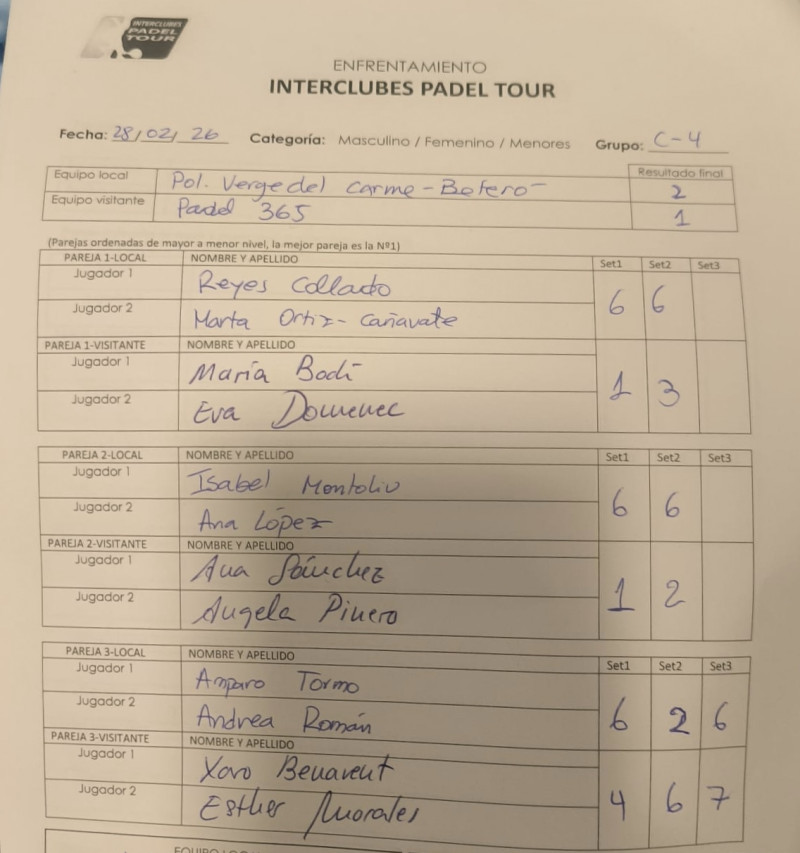 INTERCLUBES
PADEL
TOUR
ENFRENTAMIENTO
INTERCLUBES PADEL TOUR
Fecha: 28/02/26 Categoría: Masculino / Femenino / Menores Grupo: C-4
Resultado final
Equipo local Pol. Verge del Carme - Betero 2
Equipo visitante Padel 365 1
(Parejas ordenadas de mayor a menor nivel, la mejor pareja es la Nº1)
PAREJA 1-LOCAL NOMBRE Y APELLIDO Set1 Set2 Set3
Jugador 1 Reyes Collado
6 6
Jugador 2 Marta Ortiz-Cañavate
PAREJA 1-VISITANTE NOMBRE Y APELLIDO
Jugador 1 María Bodí
1 3
Jugador 2 Eva Domenec
PAREJA 2-LOCAL NOMBRE Y APELLIDO Set1 Set2 Set3
Jugador 1 Isabel Montoliu
6 6
Jugador 2 Ana López
PAREJA 2-VISITANTE NOMBRE Y APELLIDO
Jugador 1 Ana Sánchez
1 2
Jugador 2 Angela Pinero
PAREJA 3-LOCAL NOMBRE Y APELLIDO Set1 Set2 Set3
Jugador 1 Amparo Tormo
6 2 6
Jugador 2 Andrea Román
PAREJA 3-VISITANTE NOMBRE Y APELLIDO
Jugador 1 Xaro Benavent
4 6 7
Jugador 2 Esther Morales